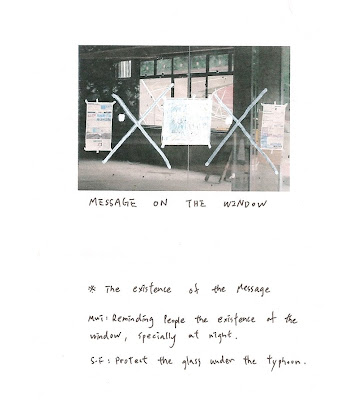 MESSAGE ON THE WINDOW
* The existence of the Message
Mui: Reminding People the existence of the
window, specially at night.
S.F: Protect the glass under the typhoon.